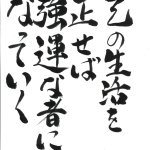 の生活を
正せば
強運な者に
なっていく